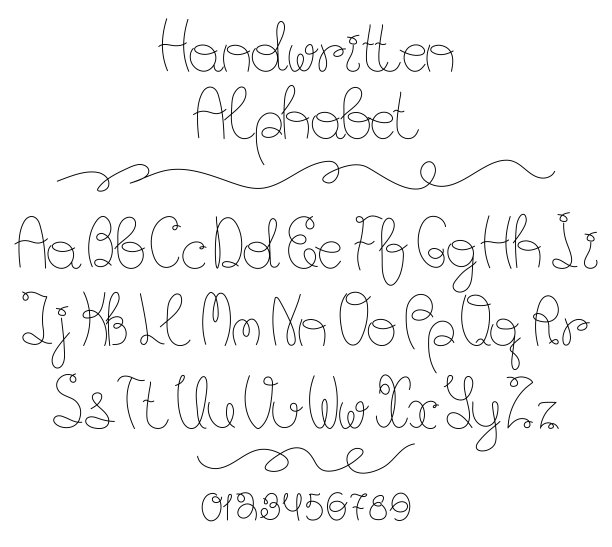 Handwritten
Alphabet
Aa Bb Cc Dd Ee Ff Gg Hh Ii
Jj Kk Ll Mm Nn Oo Pp Qq Rr
Ss Tt Uu Vv Ww Xx Yy Zz
0123456789